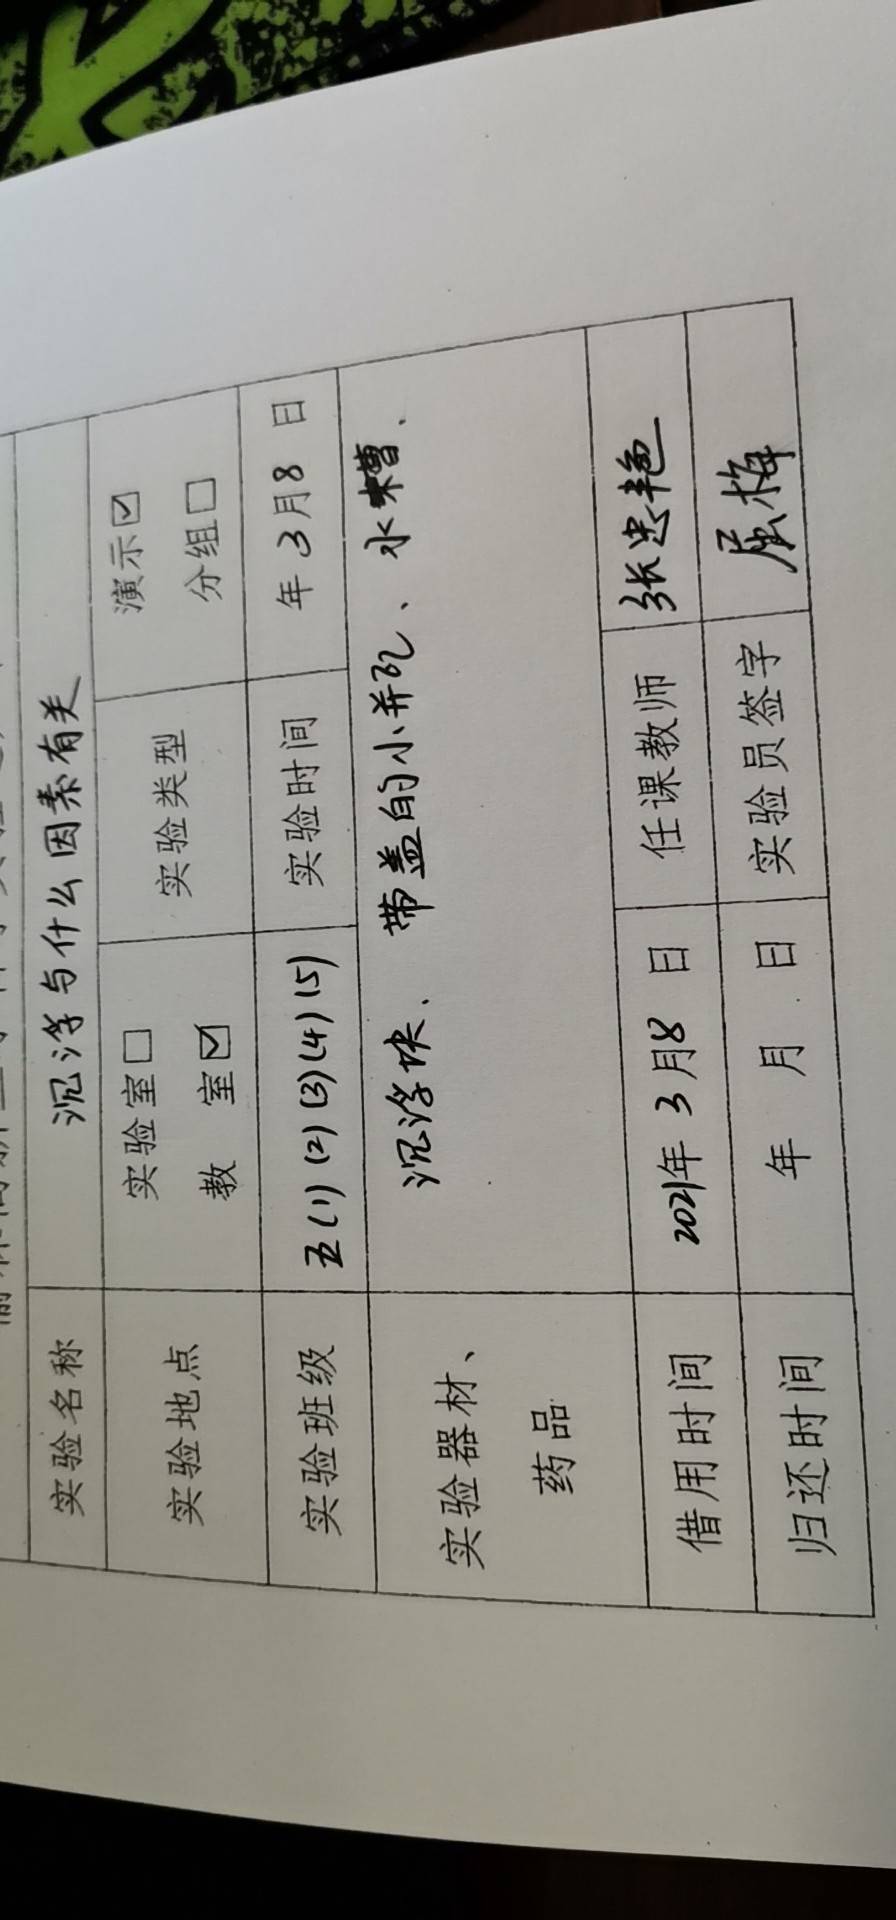 实验名称 沉浮与什么因素有关
实验地点 实验室□ 实验类型 演示☑
教 室☑ 分组□
实验班级 五(1)(2)(3)(4)(5) 实验时间 年3月8日
实验器材、 沉浮块、带盖的小并瓦、水槽.
药品
借用时间 2021年3月8日 任课教师 张忠艳
归还时间 年 月 日 实验员签字 屈梅